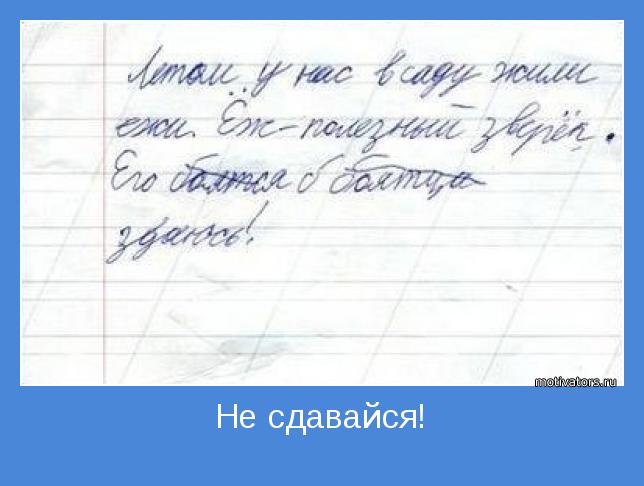 Летом у нас в саду жили
ежи. Ёж - полезный зверёк.
Его боятся б боятца
здаюсь!
motivators.ru
Не сдавайся!